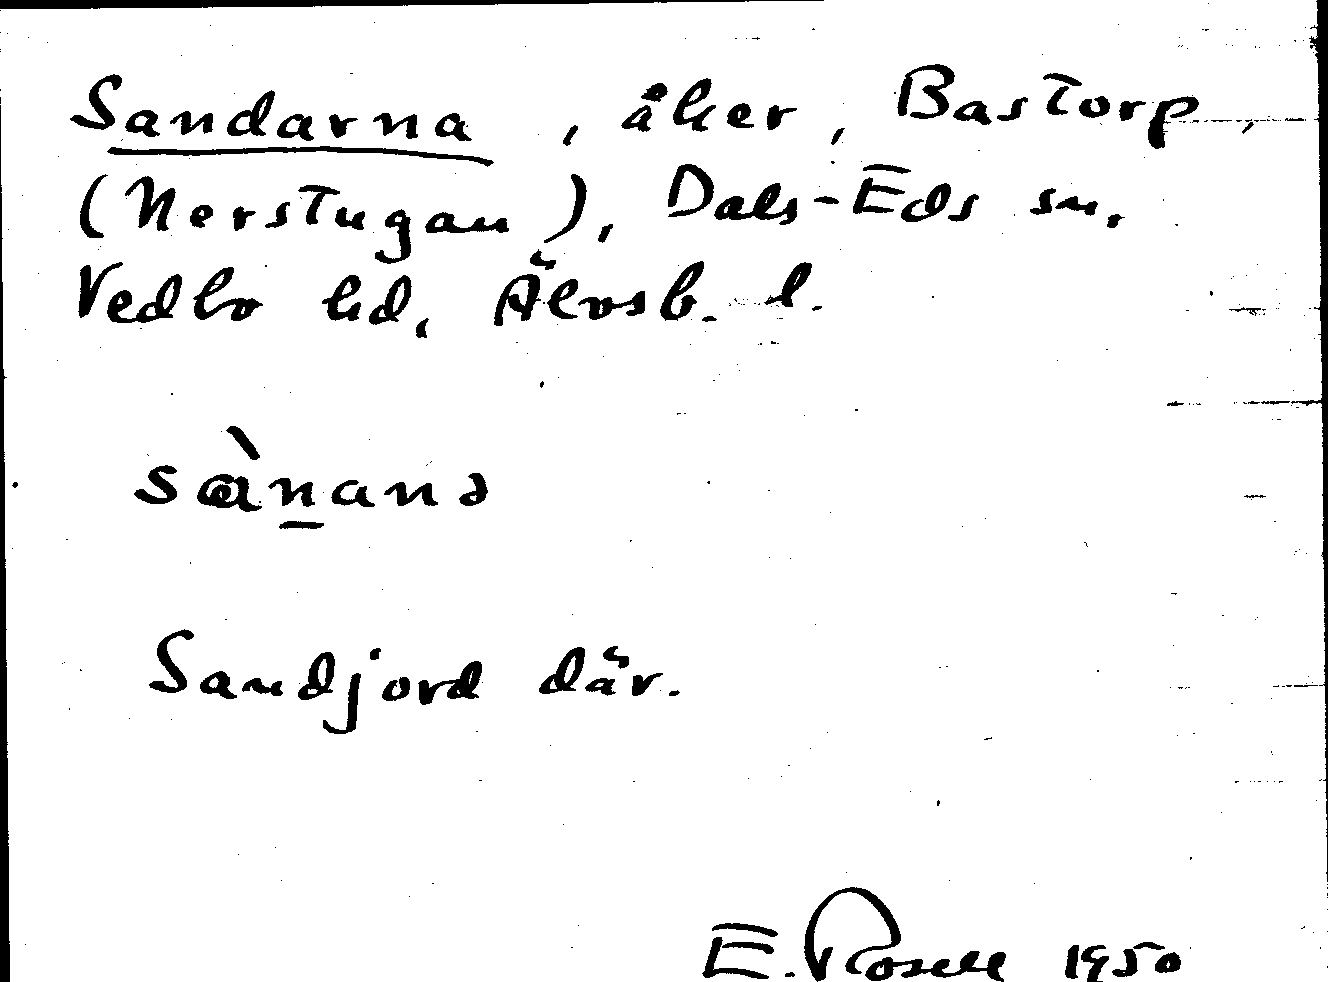 Sandarna, åker, Bastorp,
(Nerstugan), Dals-Eds sn.
Vedbo hd, Älvsb. l.
sànanə
Sandjord där.
E. Rosell 1950